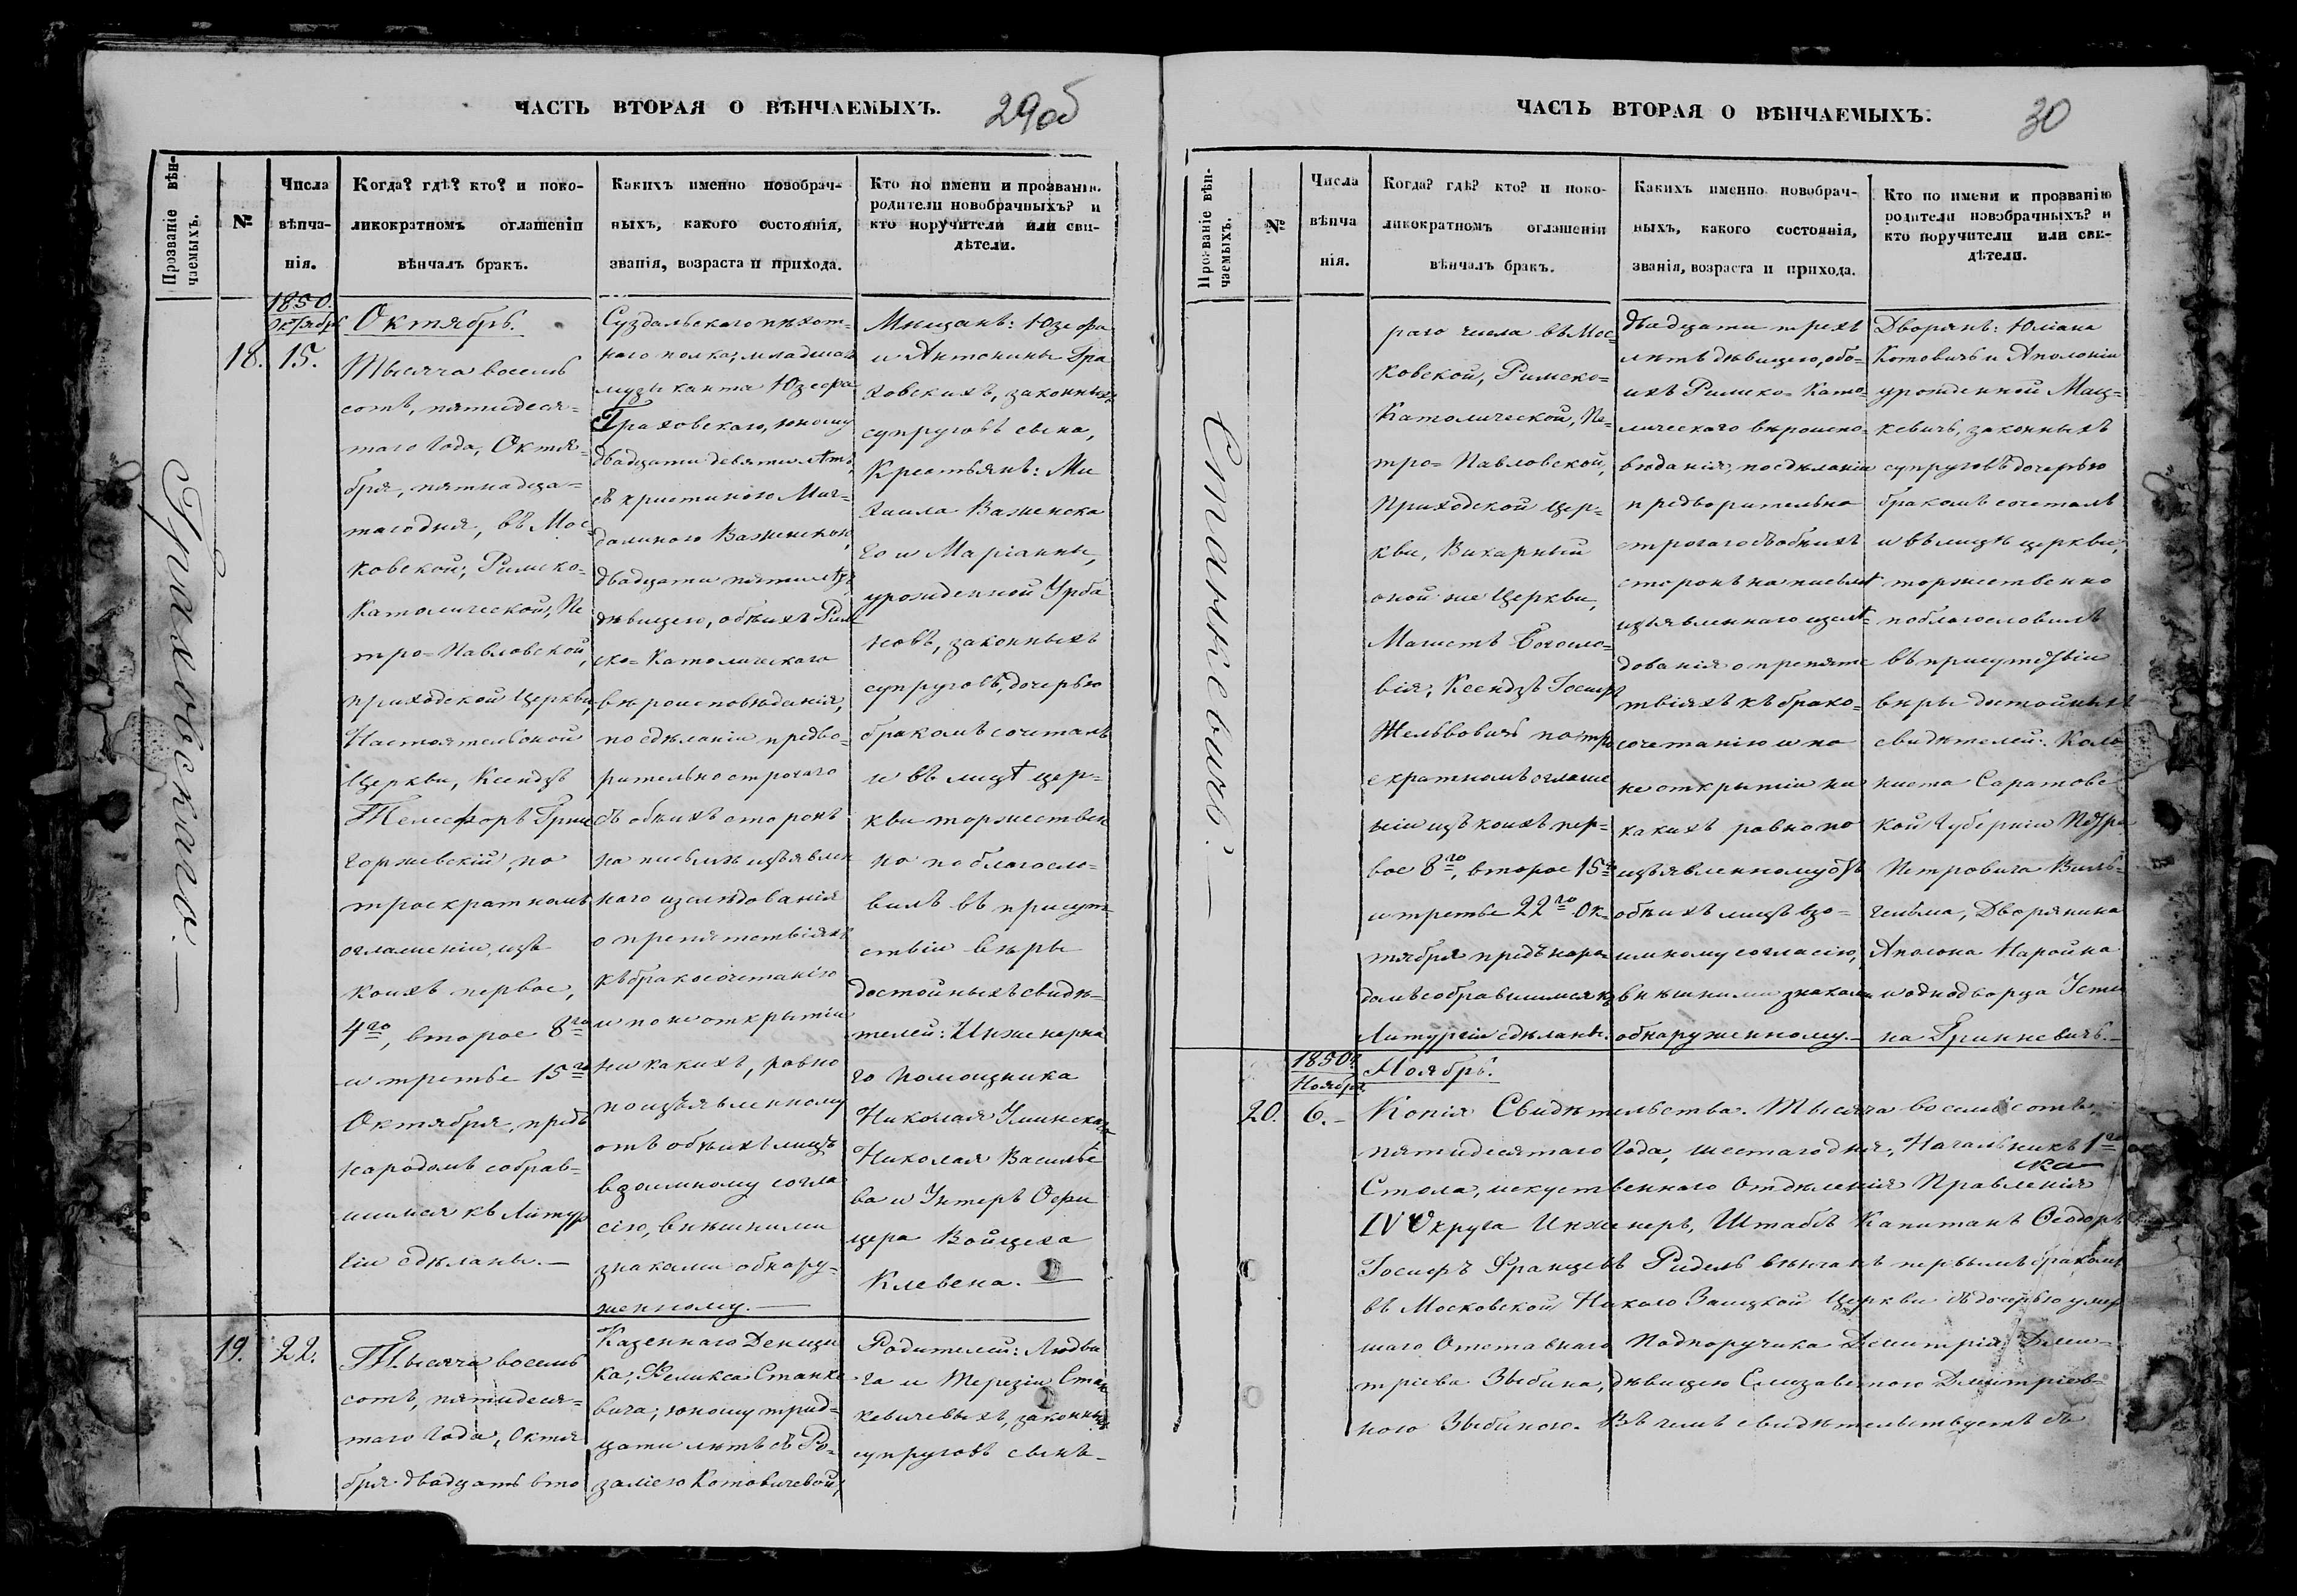 ЧАСТЬ ВТОРАЯ О ВѢНЧАЕМЫХЪ.
29об
Прозваніе вѣн-
чаемыхъ.
№
Числа
вѣнча-
нія.
Когда? гдѣ? кто? и поко-
ликократномъ оглашеніи
вѣнчалъ бракъ.
Какихъ именно новобрач-
ныхъ, какого состоянія,
званія, возраста и прихода.
Кто по имени и прозванію
родители новобрачныхъ? и
кто поручители или сви-
дѣтели.
Граховскаго.—
1850.
Октябрь
18.
15.
Октябрь.
Тысяча восемь
сотъ, пятидеся-
таго Года, Октя-
бря, пятнадца-
таго дня, въ Мос-
ковской, Римско-
Католической, Пе
тро-Павловской,
приходской Церкви,
Настоятель оной
Церкви, Ксендзъ
Телесфоръ
горжевскій, по
троекратномъ
оглашеніи, изъ
коихъ первое,
4го, второе 8го
и третье 15го
Октября, предъ
народомъ собрав-
шимся къ Литур
гіи сдѣланы.—
Суздальскаго пѣхот-
наго полка, младшаго
музыканта Юзефа
Граховскаго, юношу
двадцати девяти лѣтъ,
съ христиною Маг-
далиною Важинскою,
двадцати пяти лѣтъ,
дѣвицею, обѣихъ Рим
ско-Католическаго
вѣроисповѣданія,
по сдѣланіи предва-
рительно строгаго
съ обѣихъ сторонъ
на письмѣ изъявлен
наго изслѣдованія
о препятствіяхъ
къ бракосочетанію
и по не открытіи
ни какихъ, равно
по изъявленному
отъ обѣихъ лицъ
взаимному согла
сію, внѣшними
знаками обнару-
женному.—
Мѣщанъ: Юзефа
и Антонины Гра
ховскихъ, законныхъ
супруговъ сына,
Крестьянъ: Ми
хаила Важенска
го и Маріанны,
урожденной Урба
новъ, законныхъ
супруговъ, дочерью
бракомъ сочеталъ
и въ лицѣ цер-
кви торжествен
но поблагосло-
вилъ въ присут-
ствіи вѣры
достойныхъ свидѣ-
телей: Инженерна
го помощника
Николая
Николая Василье
ва и Унтеръ Офи
цера Войцеха
Клевена.—
19.
22.
Тысяча восемь
сотъ, пятидеся-
таго Года, Октя
бря двадцать вто
Казеннаго Денщи
ка, Феликса Станке
вича, юношу трид-
цати лѣтъ съ Ро-
заліею Котовичевой,
Родителей: Людви
га и Терезіи Стан
кевичевыхъ, законныхъ
супруговъ сынъ-
ЧАСТЬ ВТОРАЯ О ВѢНЧАЕМЫХЪ.
30
Прозваніе вѣн-
чаемыхъ.
№
Числа
вѣнча
нія.
Когда? гдѣ? кто? и поко-
ликократномъ оглашеніи
вѣнчалъ бракъ.
Какихъ именно новобрач-
ныхъ, какого состоянія,
званія, возраста и прихода.
Кто по имени и прозванію
родители новобрачныхъ? и
кто поручители или сви-
дѣтели.
Станкевичъ.—
раго числа въ Мос-
ковской, Римско-
Католической, Пе-
тро-Павловской,
Приходской Цер-
кви, Викарный
оной же Церкви,
Магистъ Богосло-
вія, Ксендзъ Іосифъ
Жельвовичъ по тро
екратномъ оглаше
ніи изъ коихъ пер-
вое 8го, второе 15го
и третье 22го Ок-
тября предъ наро-
домъ собравшимся къ
Литургіи сдѣланы.
двадцати трехъ
лѣтъ дѣвицею, обо-
ихъ Римско-Като-
лическаго вѣроиспо-
вѣданія, по сдѣланіи
предварительно
строгаго съ обѣихъ
сторонъ на письмѣ
изъявленнаго изслѣ-
дованія о препятс
твіяхъ къ брако-
сочетанію и по
не открытіи ни
какихъ равно по
изъявленному отъ
обѣихъ лицъ вза-
имному согласію,
внѣшними знаками
обнаруженному.—
Дворянъ: Юліана
Котовичъ и Аполоніи
урожденной Мац-
кевичъ, законныхъ
супруговъ дочерью
бракомъ сочеталъ
и въ лицѣ церкви,
торжественно
поблагословилъ
въ присутствіи
вѣры достойныхъ
свидѣтелей: Коло
ниста Саратовс
кой Губерніи Петра
Петровича Виль-
гельма, Дворянина
Аполона Наройна
и однодворца Усти
на Гринкевичъ.—
1850.
Ноябрь.
20.
6.-
Ноябрь.
Копія Свидѣтельства. Тысяча восемь сотъ,
пятидесятаго Года, шестаго дня, Начальникъ 1го
Стола, искуственнаго Отдѣленія Правленія
IV Округа Инженеръ, Штабсъ Капитанъ Ѳеодоръ
Іосифъ Францевъ Ридель вѣнчанъ первымъ бракомъ
въ Московской Николо Заицкой Церкви съ дочерью умер
шаго Отставнаго Подпоручика Димитрія Дми-
тріева Зыбина, дѣвицею Елизаветою Дмитріев-
ною Зыбиною. Въ чемъ свидѣтельствуетъ съ